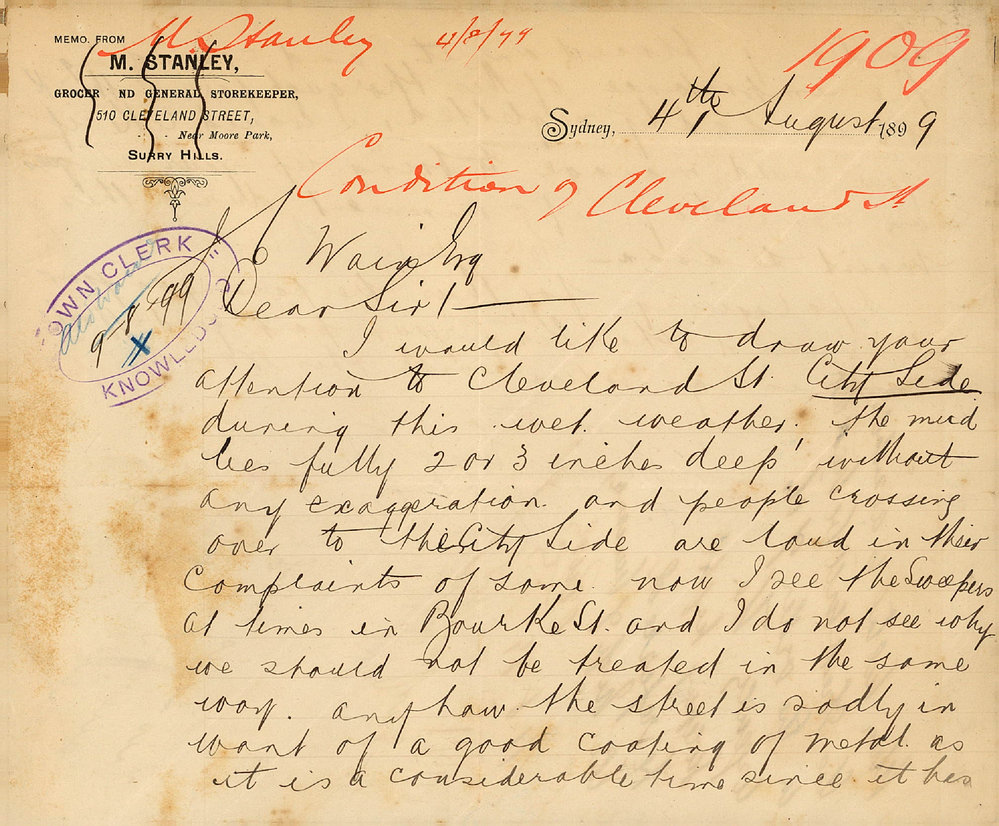 MEMO. FROM
M. Stanley 4/8/99
1909
M. STANLEY,
GROCER ND GENERAL STOREKEEPER,
510 CLEVELAND STREET,
Near Moore Park,
SURRY HILLS.
Sydney, 4th August 1899
Condition of Cleveland St
TOWN CLERK
9-8-99
X
KNOWLEDG
Wain Esq
Dear Sir!
I would like to draw your
attention to Cleveland St. City Side
during this wet weather, the mud
lies fully 2 or 3 inches deep, without
any exaggeration and people crossing
over to the City Side are loud in their
complaints of same. now I see the Sweepers
at times in Bourke St. and I do not see why
we should not be treated in the same
way. anyhow the street is sadly in
want of a good coating of metal. as
it is a considerable time since it has